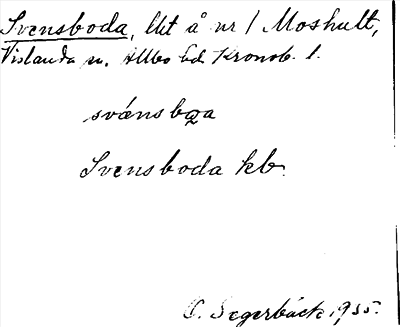 Svensboda, lht å nr 1 Moshult,
Vislanda sn. Allbo hd. Kronob. l.
Svensboda kb.
C. Segerbäck 1935.